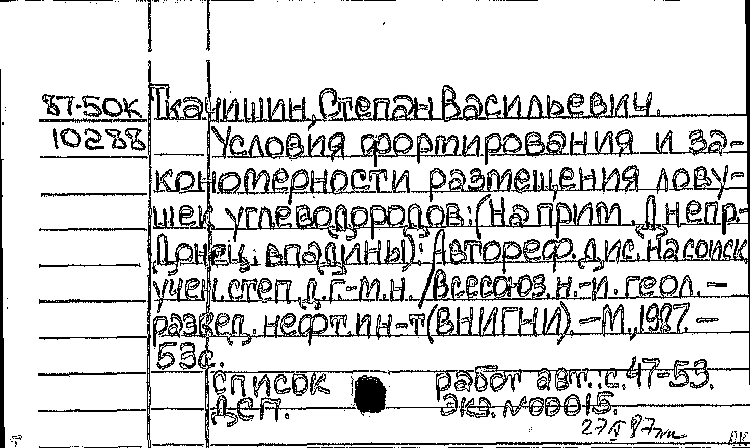 87-50к Ткачишин, Степан Васильевич.
10288 Условия формирования и за-
кономерности размещения лову-
шек углеводородов: (На прим. Днепр.-
Донец. впадины): Автореф. дис. на соиск.
учен. степ. д.г.-м.н. /Всесоюз. н.-и. геол.-
развед. нефт. ин-т (ВНИГНИ). - М., 1987. -
53с.
Список работ авт.: с. 47-53.
ДСП. Экз. №00015.